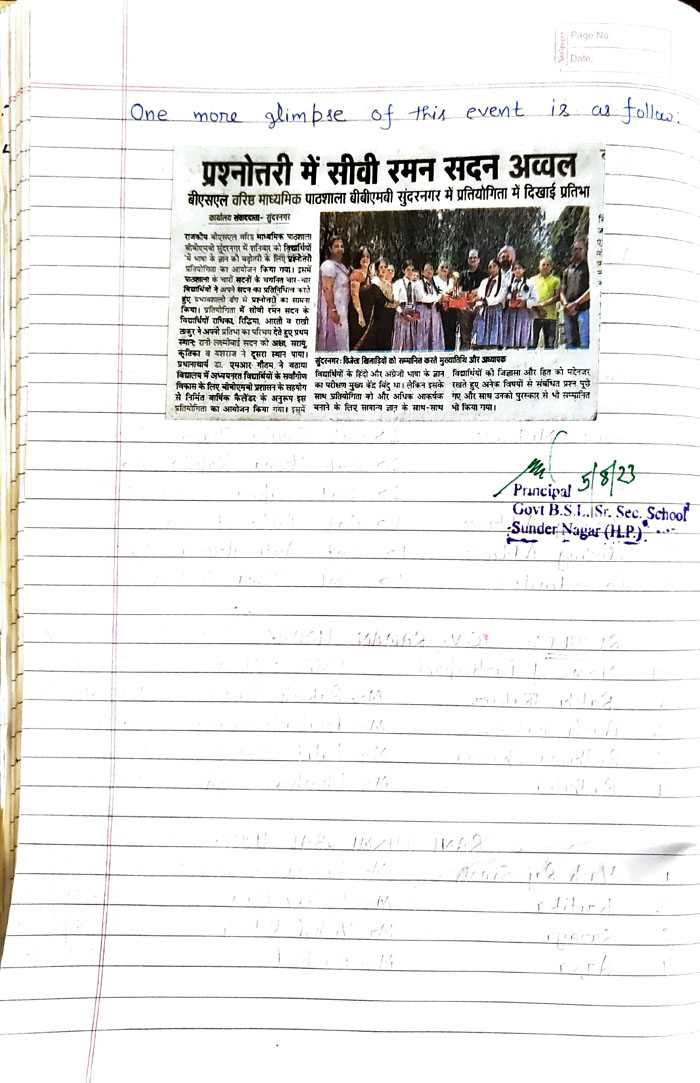 Page No.
Date:
One more glimpse of this event is as follow:
प्रश्नोत्तरी में सीवी रमन सदन अव्वल
बीएसएल वरिष्ठ माध्यमिक पाठशाला बीबीएमबी सुंदरनगर में प्रतियोगिता में दिखाई प्रतिभा
कार्यालय संवाददाता- सुंदरनगर
राजकीय बीएसएल वरिष्ठ माध्यमिक पाठशाला
बीबीएमबी सुंदरनगर में शनिवार को विद्यार्थियों
में भाषा के ज्ञान की बढ़ोत्तरी के लिए प्रश्नोत्तरी
प्रतियोगिता का आयोजन किया गया। इसमें
पाठशाला के चारों सदनों के चयनित चार-चार
विद्यार्थियों ने अपने सदन का प्रतिनिधित्व करते
हुए प्रभावशाली ढंग से प्रश्नोत्तरी का सामना
किया। प्रतियोगिता में सीवी रमन सदन के
विद्यार्थियों राधिका, रिद्धिमा, आरती व राखी
ठाकुर ने अपनी प्रतिभा का परिचय देते हुए प्रथम
स्थान, रानी लक्ष्मीबाई सदन की अक्षा, सरायु,
कृतिका व यशराज ने दूसरा स्थान पाया।
प्रधानाचार्य डा. एमआर गौतम ने बताया
विद्यालय में अध्ययनरत विद्यार्थियों के सर्वांगीण
विकास के लिए बीबीएमबी प्रशासन के सहयोग
से निर्मित वार्षिक कैलेंडर के अनुरूप इस
प्रतियोगिता का आयोजन किया गया। इसमें
सुंदरनगर: विजेता खिलाड़ियों को सम्मानित करते मुख्यातिथि और अध्यापक
विद्यार्थियों के हिंदी और अंग्रेजी भाषा के ज्ञान
का परीक्षण मुख्य केंद्र बिंदु था। लेकिन इसके
साथ प्रतियोगिता को और अधिक आकर्षक
बनाने के लिए सामान्य ज्ञान के साथ-साथ
विद्यार्थियों की जिज्ञासा और हित को मद्देनजर
रखते हुए अनेक विषयों से संबंधित प्रश्न पूछे
गए और साथ उनको पुरस्कार से भी सम्मानित
भी किया गया।
5/8/23
Principal
Govt B.S.L. Sr. Sec. School
Sunder Nagar (H.P.)